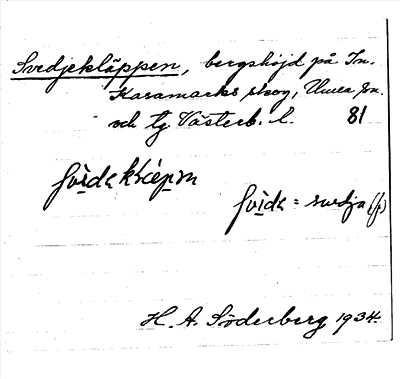 Svedjekläppen, bergshöjd på In.
Kasamarks skog, Umeå sn.
och tg Västerb. l. 81
svide = svedja (f)
H. A. Söderberg 1934.